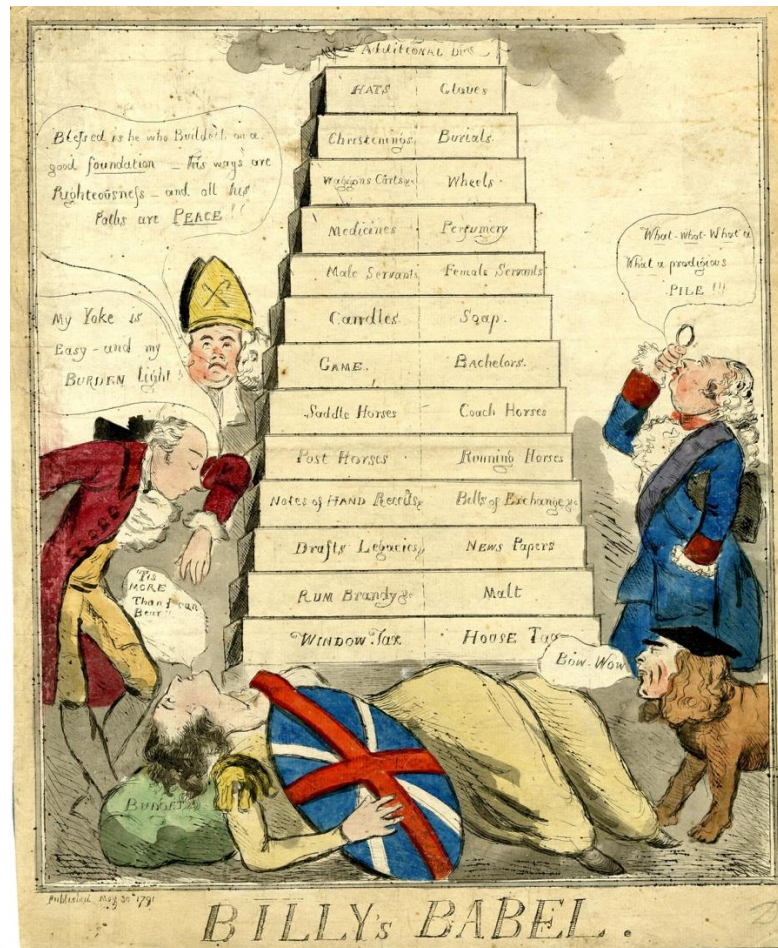 Additional Dut
HATS Gloves
Christenings Burials.
Waggons Carts &c Wheels.
Medicines Perfumery
Male Servants Female Servants
Candles. Soap.
GAME. Bachelors.
Saddle Horses Coach Horses
Post Horses Running Horses
Notes of HAND Receits, Bills of Exchange &c
Drafts Legacies, NEWS PAPERS
RUM Brandy &c Malt
WINDOW Tax HOUSE Tax
Blessed is he who Buildeth on a
good foundation – His ways are
Righteousness – and all his
Paths are PEACE !!
My Yoke is
Easy – and my
BURDEN light
What-What-What a
What a prodigious
PILE !!!
'Tis
MORE
Than I can
Bear!!
Bow-Wow
BUDGET
Published May 30 1791
BILLY's BABEL.